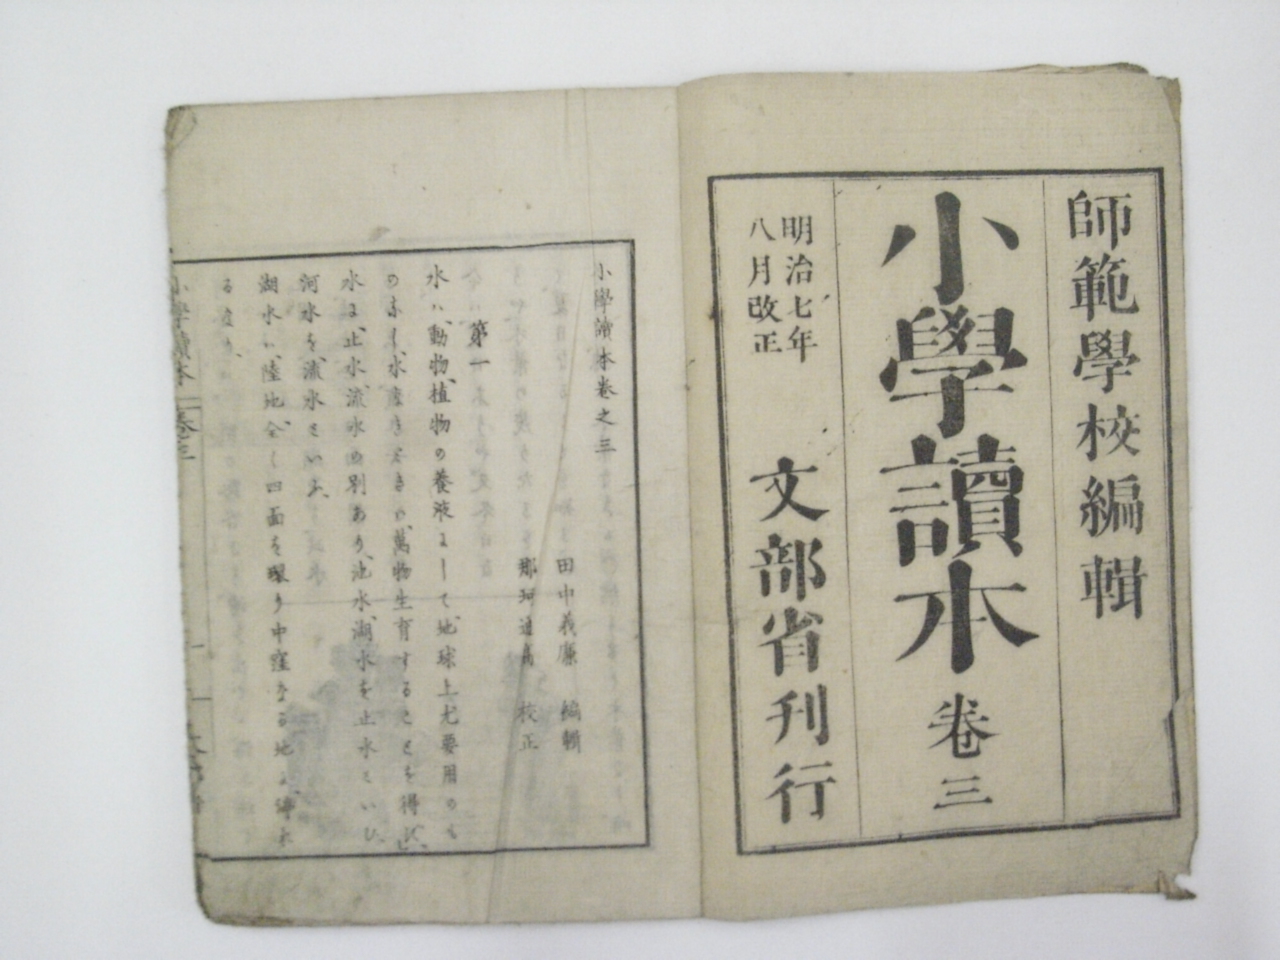 師範學校編輯
小學讀本 卷三
明治七年
八月改正
文部省刊行
小學讀本卷之三
田中義廉 編輯
那珂通高 校正
第一
水ハ、動物、植物の養液にして、地球上尤要用のも
のなり、水陸き
萬物生育することを得ば、
水に、止水、流水の別あり、池水、湖水を止水といひ、
河水を、流水といふ、
湖水ハ、陸地全く四面を環り中窪なる地に、
小學讀本 卷之三